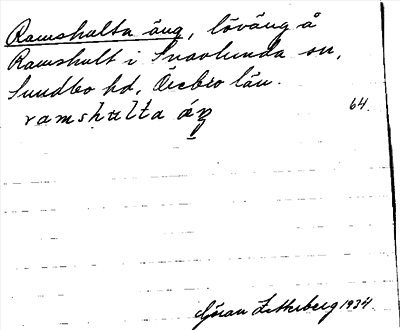 Ramshulta äng, löväng å
Ramshult i Snavlunda sn,
Sundbo hd, Örebro län.
ramshulta áŋ 64.
Göran Zetterberg 1934